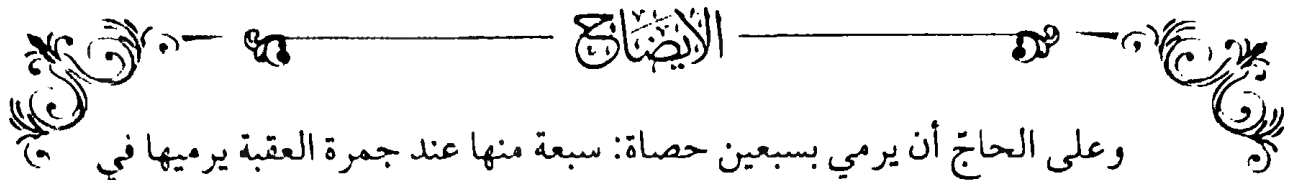 الإيضاح
وعلى الحاجّ أن يرمي بسبعين حصاة: سبعة منها عند جمرة العقبة يرميها في